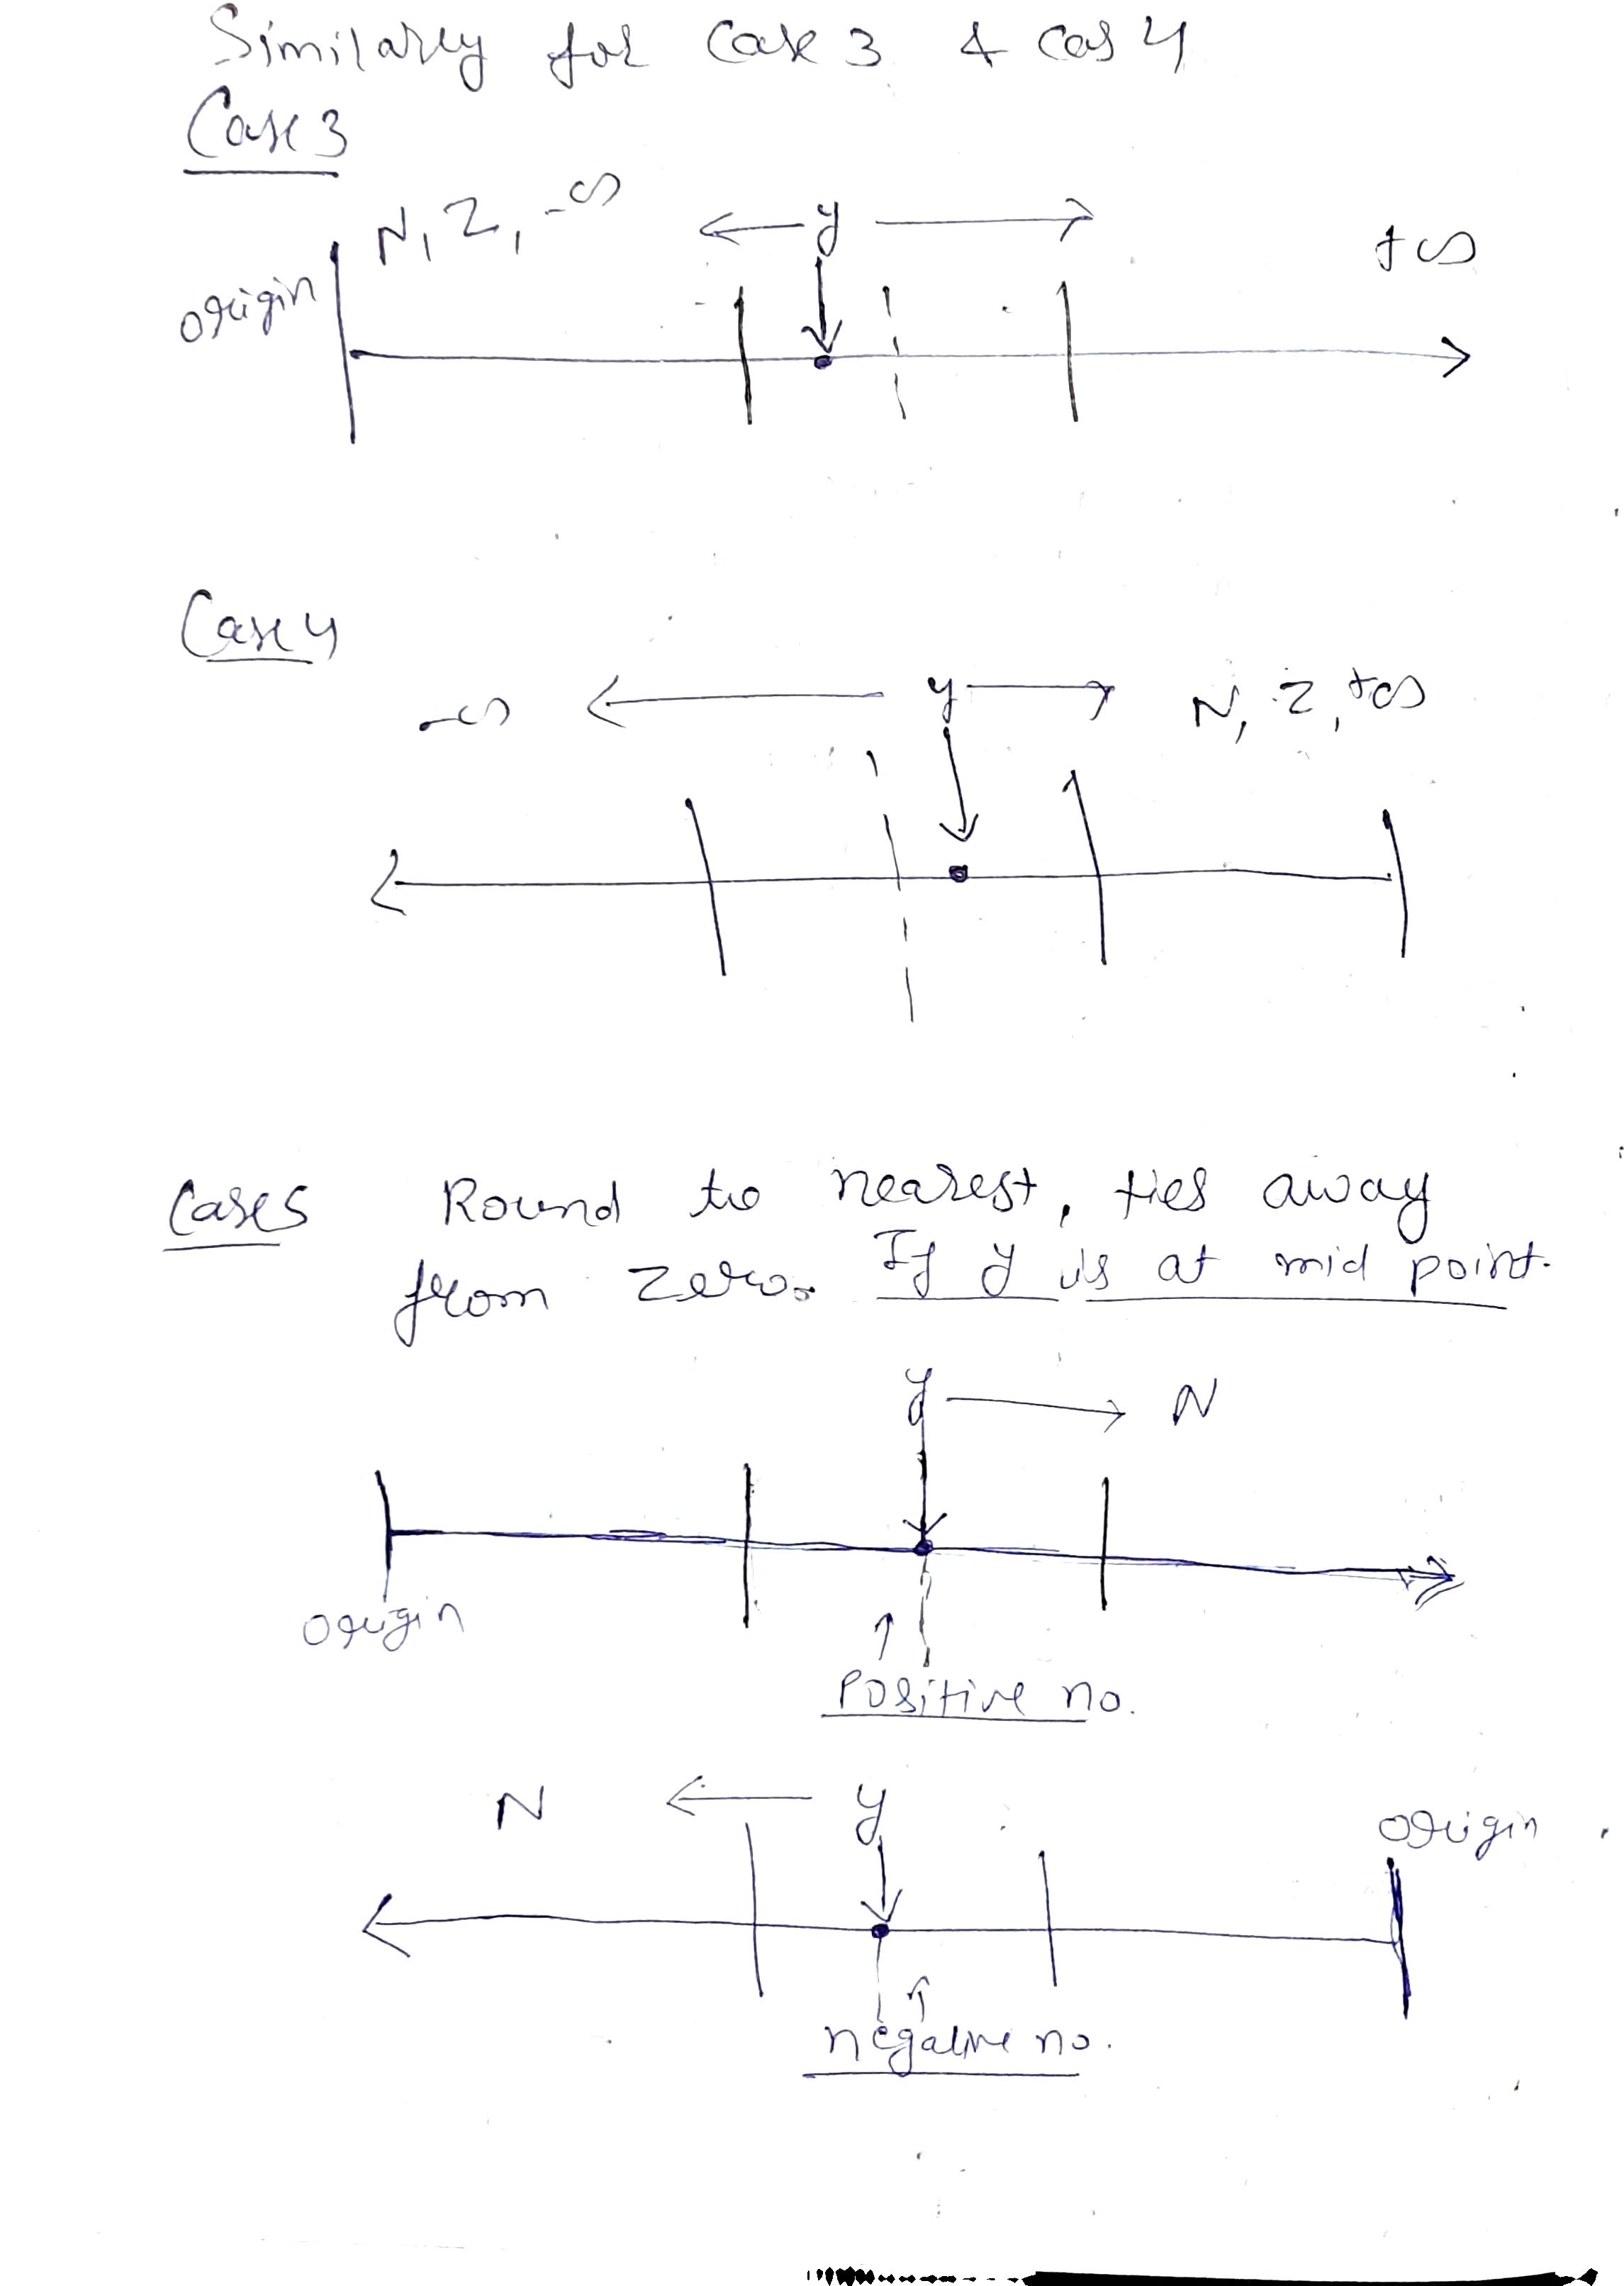 Similarly for Case 3 & Cas 4
Case 3
N, Z, -∞ y +∞
origin
Case 4
-∞ y N, Z, +∞
Case 5 Round to nearest, ties away
from zero. If y is at mid point.
y N
origin
Positive no.
N y
origin
negative no.